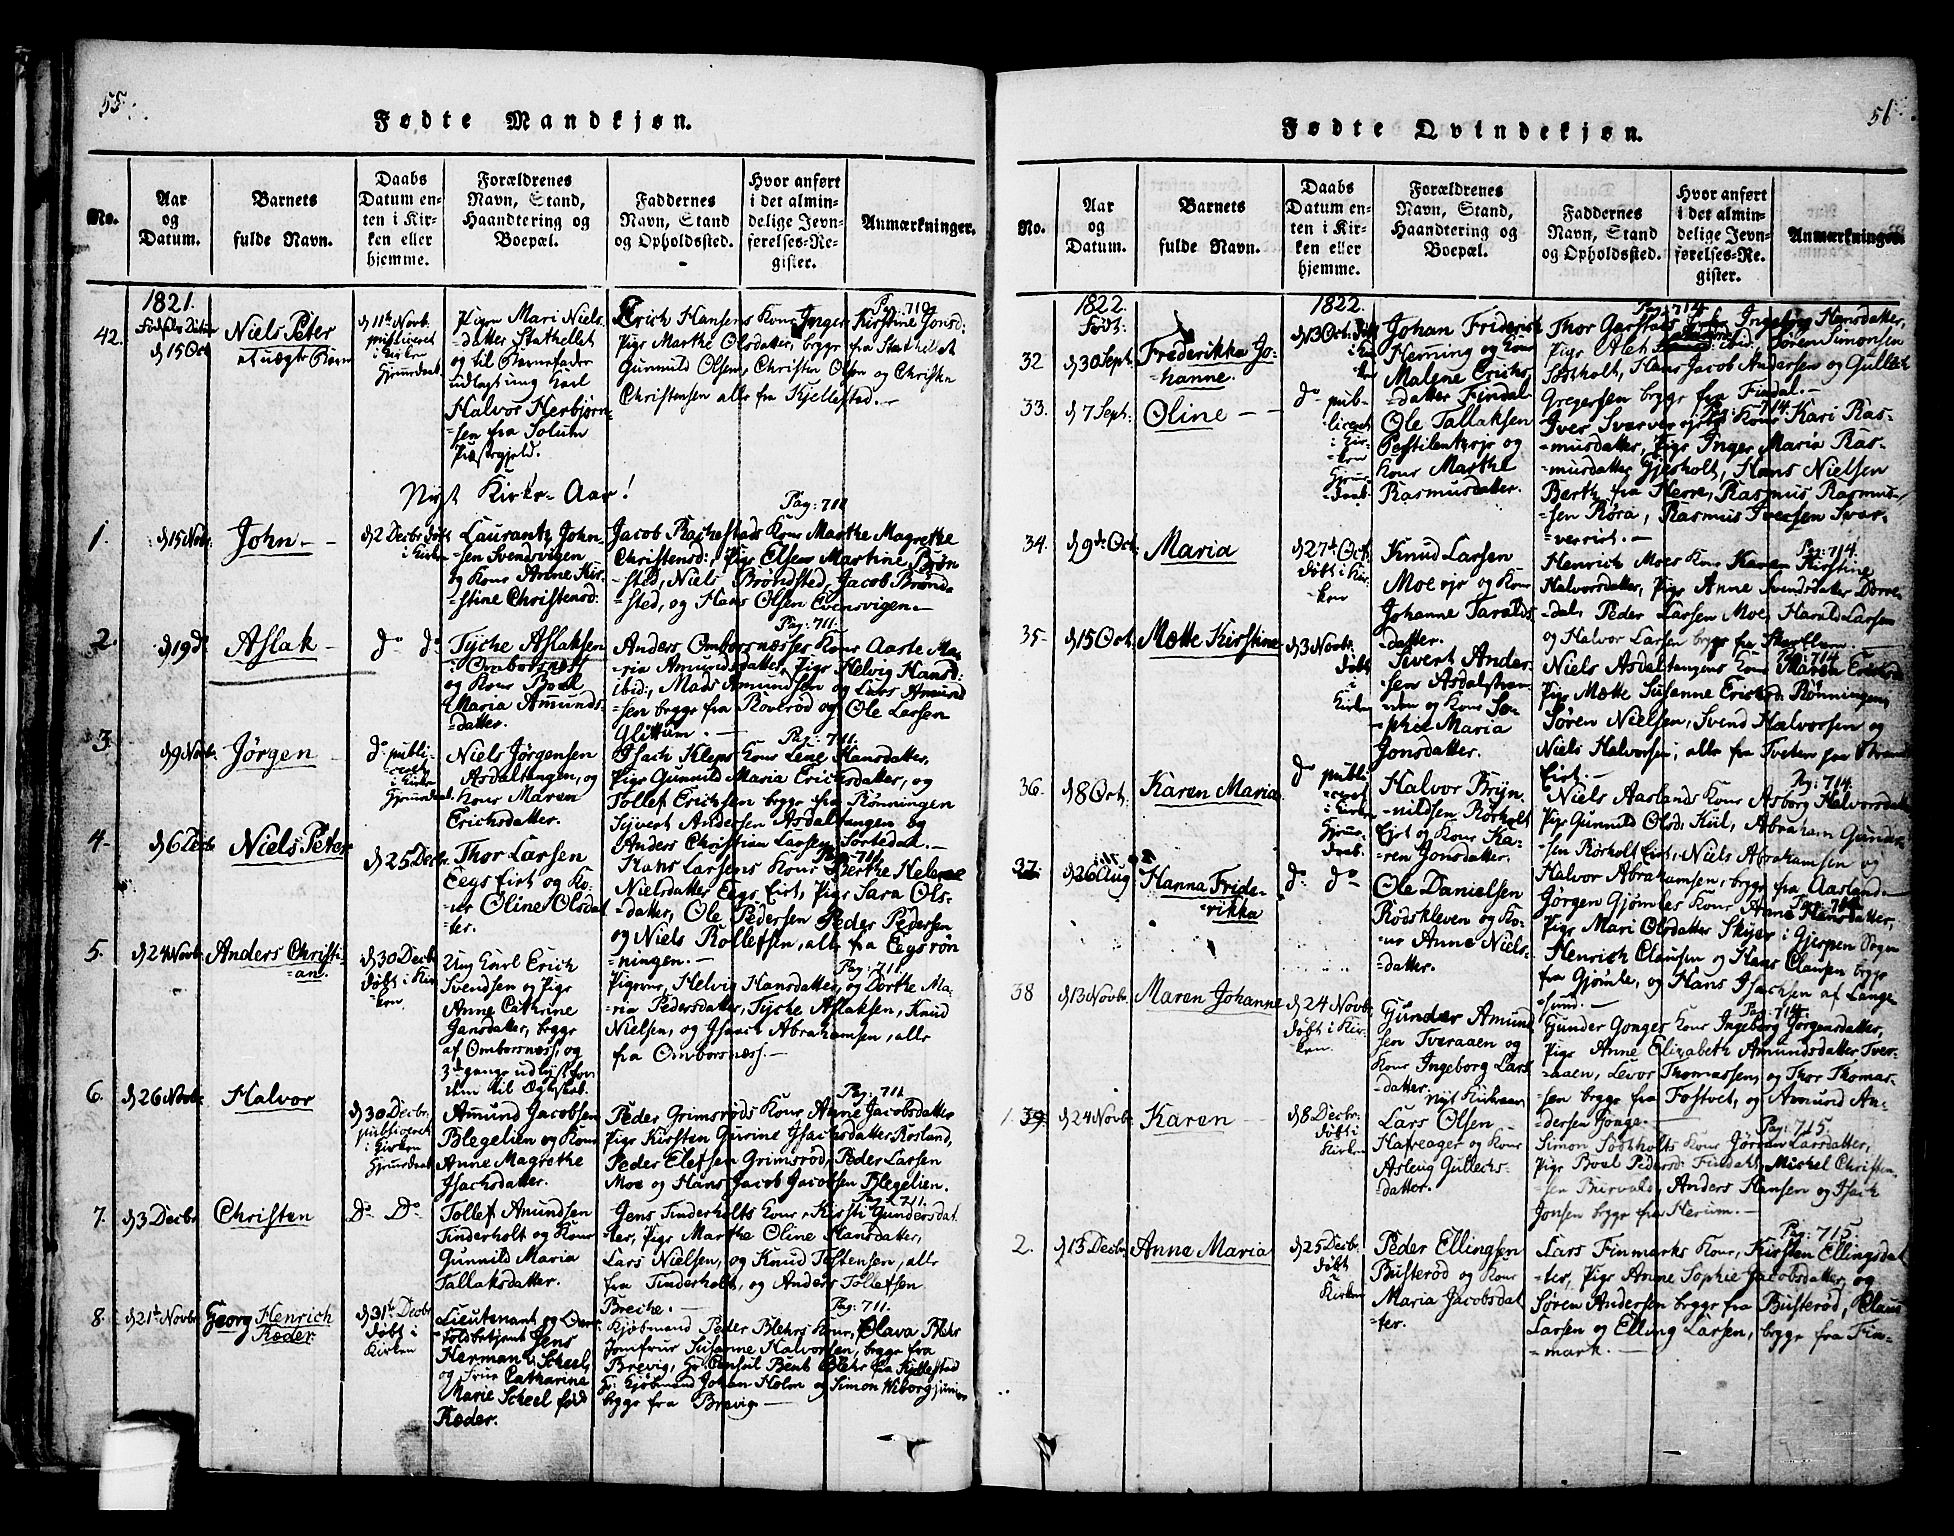 55.
Fødte Mandkjøn.
No.
Aar
og
Datum.
Barnets
fulde Navn.
Daabs
Datum en-
ten i Kir-
ken eller
hjemme.
Forældrenes
Navn, Stand,
Haandtering og
Boepæl.
Faddernes
Navn, Stand
og Opholdssted.
Hvor anført
i det almin-
delige Jevn-
førelses-Re-
gister.
Anmærkninger.
1821.
42.
d 15 Oct
Niels Peter
et uægte Barn
d 11te Novb.
publiceret
i Kirken
Hjemmedaab.
Pigen Mari Niels-
datter Stathellet
og til Barnefader
udlagt ung Karl
Halvor Herbjørn-
sen fra Solum
Præstegjeld.
Pag: 710
Erich Hansens Kone Inger Kirstine Jonsd:
Pige Marthe Olsdatter, begge fra Stathellet
Gunnuld Olsen, Christen Olsen og Christen
Christensen alle fra Kjellestad.
Nyt Kirke-Aar!
1.
d 15 Novbr.
John
d 2 Decbr. døbt
i Kirken
Laurantz John-
sen Svendsvigen
og Kone Anne Kir-
stine Christensd:
Pag: 711
Jacob Rachestads Kone Marthe Magrethe
Christensd: Pige Elsem Martine Brøn-
sted, Niels Brøndsted, Jacob Brønd-
sted, og Hans Olsen Evensvigen.
2.
d 19 do
Aslak
do do
Tyche Aslaksen
Omborsness
og Kone Boel
Maria Amunds-
datter.
Pag: 711.
Anders Omborsnæsses Kone Aaste Ma-
ria Amundsdatter, Pige Helvig Hansd:
ibid:, Mads Amundsen og Lars Amund-
sen begge fra Roverød og Ole Larsen
Glittum.
3.
d 9 Novbr.
Jørgen
do publi-
ceret
i Kirken
Hjemmedaab.
Niels Jørgensen
Asdaltangen, og
Kone Maren
Erichsdatter.
Pag: 711.
Isach Kleps Kone Lene Hansdatter,
Pige Gunnild Maria Erichsdatter, og
Tollef Erichsen begge fra Rønningen
Syvert Andersen Asdaltangen og
Anders Christian Larsen Sortedal.
4.
d 6 Decbr
Niels Peter
d 25 Decbr.
Thor Larsen
Eegs Eirt og Ko-
ne Oline Olsdat-
ter.
Pag: 711.
Hans Larsens Kone Berthe Helene
Nielsdatter Eegs Eirt, Pige Sara Ols-
datter, Ole Pedersen Peder Pedersen
og Niels Rollefsen, alle fra Eegsrøn-
ningen.
5.
d 24 Novbr.
Anders Christi-
an.
d 30 Decbr
døbt i Kir-
ken
Ung Karl Erich
Svendsen og Pige
Anne Cathrine
Jansdatter, begge
af Omborsness, og
3de gange udlyst for-
dem til Ægteskab.
Pag: 711.
Pigerne, Helvig Hansdatter, og Dorthe Ma-
ria Pedersdatter, Tyche Aslaksen, Knud
Nielsen, og Isaach Abrahamsen, alle
fra Omborsness.
6.
d 26 Novbr.
Halvor
d 30 Decbr.
publiceret
i Kirken
Hjemmedaab.
Amund Jacobsen
Blegelien og Kone
Anne Magrethe
Isachsdatter.
Pag: 711
Peder Grimsrøds Kone Anne Jacobsdatter
Pige Kirsten Gurine Isachsdatter Rosland,
Peder Elefsen Grimsrød, Peder Larsen
Moe og Hans Jacob Jacobsen Blegelien.
7.
d 3 Decbr.
Christen
Do Do
Tollef Amundsen
Tinderholt og Kone
Gunnild Maria
Tallaksdatter.
Pag: 711.
Jens Tinderholts Kone Kirsti Gundersdat-
ter, Pige Marthe Oline Hansdatter,
Lars Nielsen, og Knud Tostensen, alle
fra Tinderholt, og Anders Tollefsen
Breche.
8.
d 21te Novbr.
Georg Henrich
Reder
d 31te Decbr
døbt i
Kirken
Lieutenant og Over-
toldbetjent Jens
Herman v. Scheel
og Frue Catharina
Marie Scheel fød
Reder.
Pag: 711.
Kjøbmand Peder Blehrs Kone, Olava Blehr
Jomfrue Susanne Halvorsen, begge fra
Brevig, Hr Consul Bent Blehr fra Kjellestad
Hr. Kjøbmand Johan Holm og Simon Wiborg junior
begge fra Brevig.
56.
Fødte Qvindekjøn.
No.
Aar
og
Datum.
Barnets
fulde Navn.
Daabs
Datum en-
ten i Kir-
ken eller
hjemme.
Forældrenes
Navn, Stand,
Haandtering og
Boepæl.
Faddernes
Navn, Stand
og Opholdssted.
Hvor anført
i det almin-
delige Jevn-
førelses-Re-
gister.
Anmærkninger.
1822.
Født:
1822.
32
d 30 Sept.
Frederikka Jo-
hanne.
d 13 Oct. døbt
i Kir-
ken
Johan Friderik
Hemming og Kone
Malene Erichs-
datter Findal
Pag: 714
Ingeborg Hansdatter,
Søren Simonsen
Søtholt, Hans Jacob Andersen og Gullech
Gregersen begge fra Findal.
33.
d 7 Sept.
Oline
do pub-
liceret
i Kir-
ken
Hjemme-
daab.
Ole Tallaksen
Pestilentzeje og
Kone Marthe
Rasmusdatter.
Pag: 714.
Iver Svarverejets Kone Kari Ras-
musdatter, Pige Inger Maria Ras-
musdatter Gjesholt, Hans Nielsen
Barth fra Herre, Rasmus Rasmus-
sen Røra, Rasmus Iversen Svar-
vereirt.
34.
d 9de Oct.
Maria
d 27de Oct
døbt i Kir-
ken
Knud Larsen
Moe eje og Kone
Johanne Taralds-
datter.
Pag: 714.
Henrich Moes Kone Karen Kirstine
Halvorsdatter, Pige Anne Svendsdatter Dorre-
dal, Peder Larsen Moe, Harald Larsen
og Halvor Larsen begge fra
35.
d 15 Oct.
Mætte Kirstine
d 3 Novbr.
døbt
i
Kirken
Severt Ander-
sen Asdalstran-
den og Kone So-
phie Maria
Jonsdatter.
Pag: 714
Niels Asdaltangens Kone Maren Erichsd.
Pige Mætte Susanne Erichsd. Rønningen,
Søren Nielsen, Svend Halvorsen og
Niels Halvorsen, alle fra Tveten paa Strand
Eirt.
36.
d 8 Oct.
Karen Maria
do publi-
ceret
i Kirken
Hjemme-
daab.
Halvor Bryn-
nildsen Rørholt
Eirt og Kone Ka-
ren Jonsdatter.
Pag: 714.
Niels Aaslands Kone Asborg Halvorsdatter
Pige Gunnild Olsd. Kiil, Abraham Gunder-
sen Rørholt Eirt, Niels Abrahamsen og
Halvor Abrahamsen, begge fra Aasland.
37.
d 26 Aug
Hanna Fride-
rikka
do do
Ole Danielsen
Rødskleven og Ko-
ne Anne Niels-
datter.
Pag: 714
Jørgen Gjømles Kone Anne Hansdatter,
Pige Mari Olsdatter Skyer i Gjerpen Sogn
Henrich Clausen og Hans Clausen begge
fra Gjømle, og Hans Isachsen af Lange-
sund.
38
d 13 Novbr.
Maren Johanne
d 24 Novbr.
døbt i Kir-
ken.
Gunder Amund-
sen Tveraaen og
Kone Ingeborg Lars-
datter.
Pag: 714.
Gunder Gonges Kone Ingeborg Jørgensdatter,
Pige Anne Elizabeth Amundsdatter Tver-
aaen, Levor Thomassen, og Thor Thomas-
sen begge fra Fostvet, og Amund An-
dersen Gonge.
Nyt Kirkeaar
1. 39
d 24 Novbr.
Karen
d 8 Decbr.
døbt i
Kirken
Lars Olsen
Hafveager og Kone
Asleug Gullechs-
datter.
Pag: 715.
Simon Søtholts Kone Jørgen Larsdatter,
Pige Boel Pedersd: Findahl, Michel Christen-
sen Burvald, Anders Hansen og Isach
Jonsen begge fra Herum.
2.
d 13 Decbr.
Anne Maria
d 25 Decbr.
døbt i
Kirken
Peder Ellingsen
Busterød og Kone
Maria Jacobsdat-
ter.
Pag: 715.
Lars Finmarks Kone, Kirsten Ellingsdat-
ter, Pige Anne Sophie Jacobsdatter, og
Søren Andersen begge fra Busterød, Claus
Larsen og Elling Larsen, begge fra Fin-
mark.